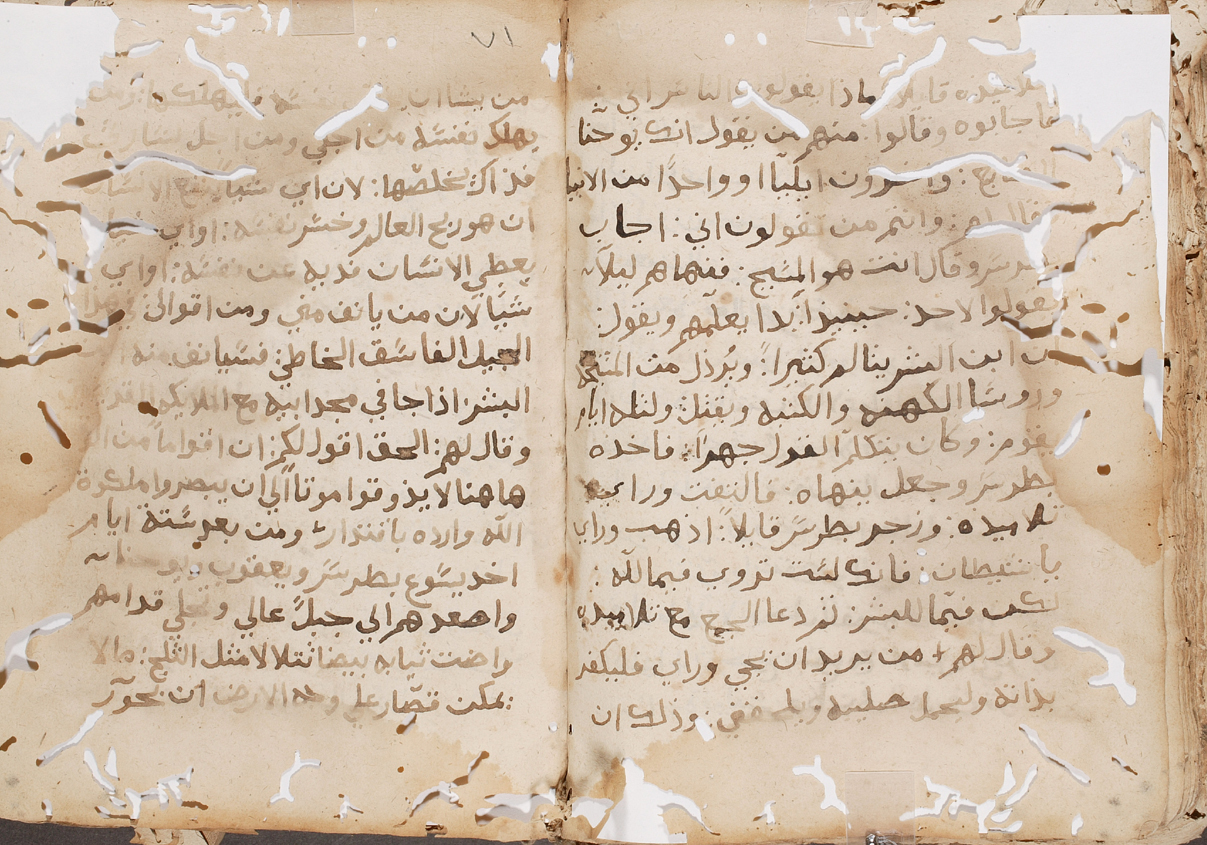 تلاميذه قايلا ماذا يقولون الناس اني
فاجابوه وقالوا: منهم من يقول انك يوحنا
واخرون ايليا او واحدا من الانبيا
وانتم من تقولون اني: اجاب
بطرس وقال انت هو المسيح: فنهاهم ليلا
يقولوا لاحد: حينيذ ابدا يعلمهم ويقول:
ان ابن البشر يتالم كثيرا: ويرذل من المشيخه
وروسا الكهنه والكتبه ويقتل: ولتلته ايام
يقوم: وكان يتكلم القول جهرا: فاخذه
بطرس وجعل ينهاه: فالتفت وراي
تلاميذه: وزجر بطرس قايلا: اذهب وراي
يا شيطان: فانك لست تروي فيما لله:
لكن فيما للبشر: ثم دعا الجمع مع تلاميذه
وقال لهم + من يريد ان يجي وراي فليكفر
بذاته وليحمل صليبه ويلحقني: وذلك ان
٧١
من يشا ان نفسه فليهلكها: ومن
يهلك نفسه من اجلي ومن اجل بشارتي
فذاك يخلصها: لان اي شيا ينفع الانسان
ان هو ربح العالم وخسر نفسه: او اي شيا
يعطي الانسان فديه عن نفسه: او اي
شيا لان من يانف مني ومن اقوالي في هذا
الجيل الفاسق الخاطي: فسيانف منه ابن
البشر: اذا جا في مجد ابيه مع الملايكه القديسين
وقال لهم: الحق اقول لكم: ان اقواما من
هاهنا لا يذوقوا موتا الي ان يبصروا ملكوة
الله وارده باقتدار: ومن بعد ستة ايام
اخد يسوع بطرس ويعقوب ويوحنا
واصعدهم الي جبل عالي وتجلي قدامهم
واضت ثيابه بيضا تتلالا مثل الثلج: مالا
يمكن قصار علي وجه الارض ان يحور